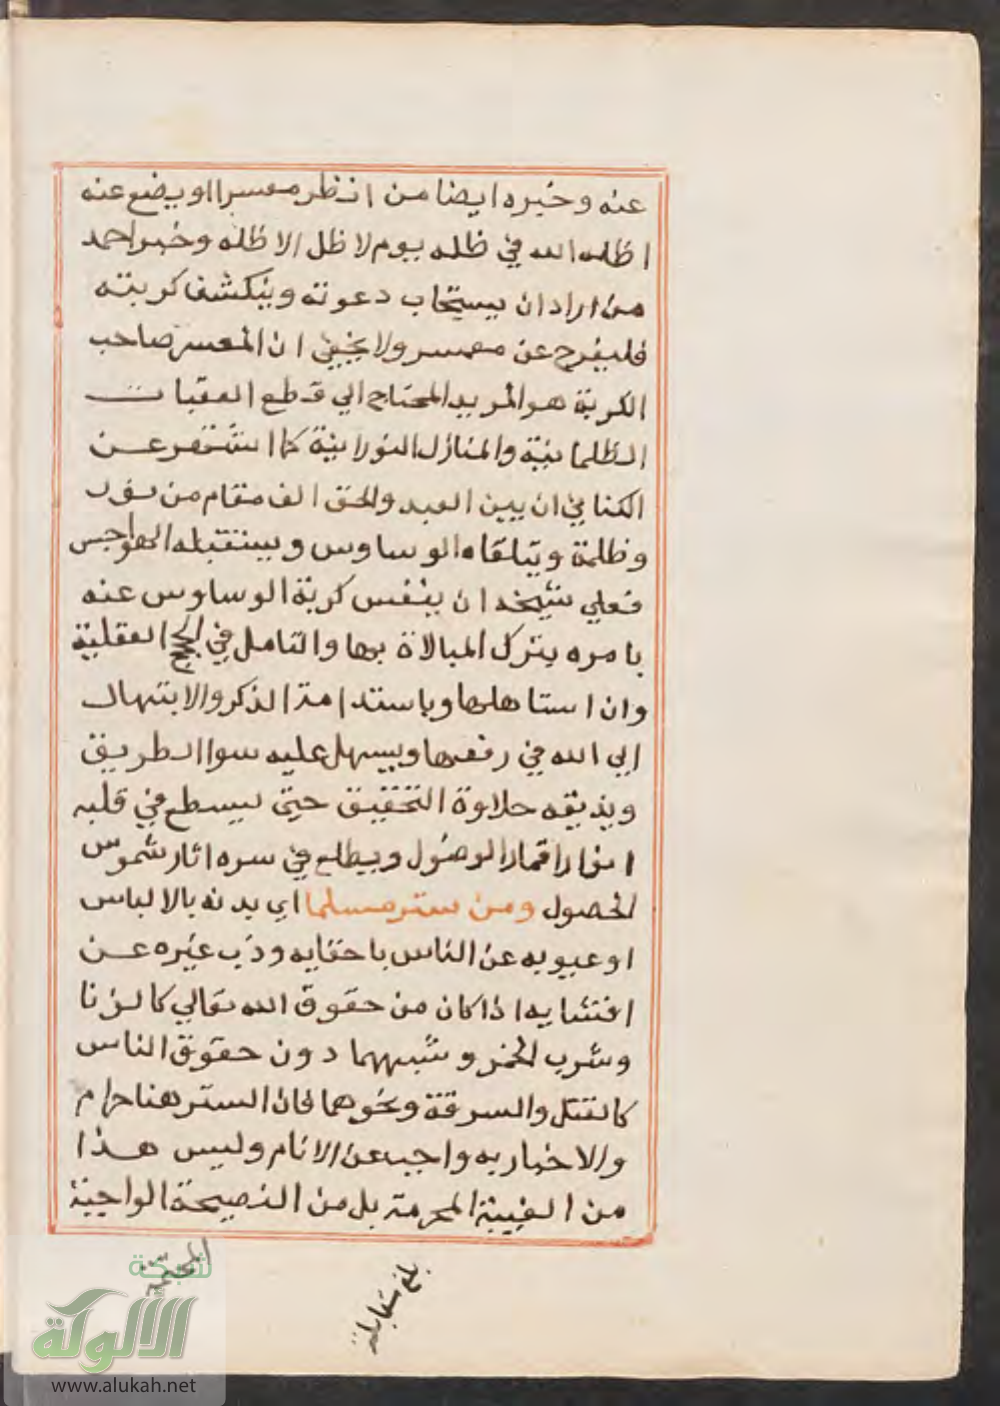 عنه وخبره ايضا من انظر معسرا او يضع عنه
اظله الله في ظله يوم لا ظل الا ظله وخبر احمد
من اراد ان يستجاب دعوته وينكشف كربته
فليفرج عن معسر ولا يخفى ان المعسر صاحب
الكربة هو المريد المحتاج الي قطع العقبات
الظلمانية والمنازل النورانية كما اشتهر عن
الكتاني ان بين العبد والحق الف مقام من نور
وظلمة ويتلقاه الوساوس ويستقبله الهواجس
فعلي شيخه ان ينفس كربة الوساوس عنه
بامره بترك المبالاة بها والتامل في الحجج العقلية
وان استاهلها وباستدامة الذكر والابتهال
الي الله في رفعها ويسهل عليه سوا الطريق
ويذيقه حلاوة التحقيق حتى يسطع في قلبه
انوار اقمار الوصول ويطلع في سره اثار شموس
الحصول ومن ستر مسلما اي بدنه بالالباس
او عيوبه عن الناس باخفايه وذب غيره عن
افتشايه اذا كان من حقوق الله تعالي كالزنا
وشرب الخمر وشبههما دون حقوق الناس
كالقتل والسرقة ونحوهما فان الستر هنا حرام
والاخبار به واجب عن الانام وليس هذا
من الغيبة المحرمة بل من النصيحة الواجبة
بلغ مقابلة
شبكة
الألوكة
www.alukah.net